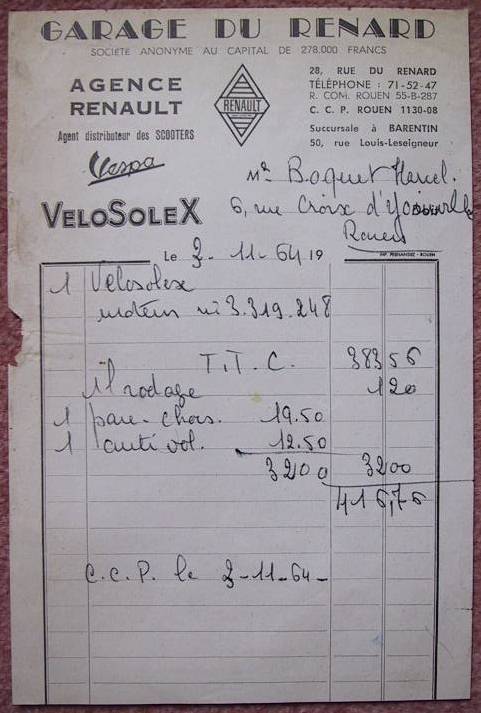 GARAGE DU RENARD
SOCIÉTÉ ANONYME AU CAPITAL DE 278.000 FRANCS
AGENCE
RENAULT
Agent distributeur des SCOOTERS
Vespa
VELOSOLEX
RENAULT
28, RUE DU RENARD
TÉLÉPHONE : 71-52-47
R. COM. ROUEN 55-B-287
C. C. P. ROUEN 1130-08
Succursale à BARENTIN
50, rue Louis-Leseigneur
Mr Boquet Marcel.
6, rue Croix d'Yonville
Rouen
Le 3-11-64 19
IMP. FERNANDEZ - ROUEN
1 Velosolex
moteur n° 3.319.248
T.T.C. 383 56
1l rodage 1 20
1 pare-chocs. 19.50
1 anti vol. 12.50
32 00 32 00
416,76
C.C.P. le 3-11-64-